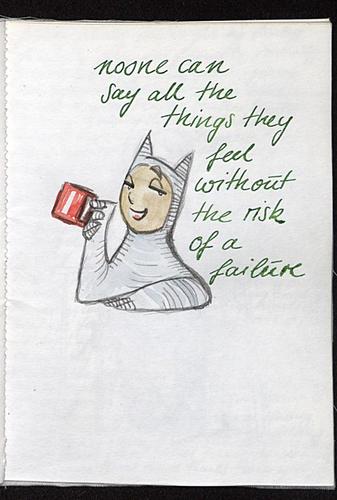 noone can
say all the
things they
feel
without
the risk
of a
failure